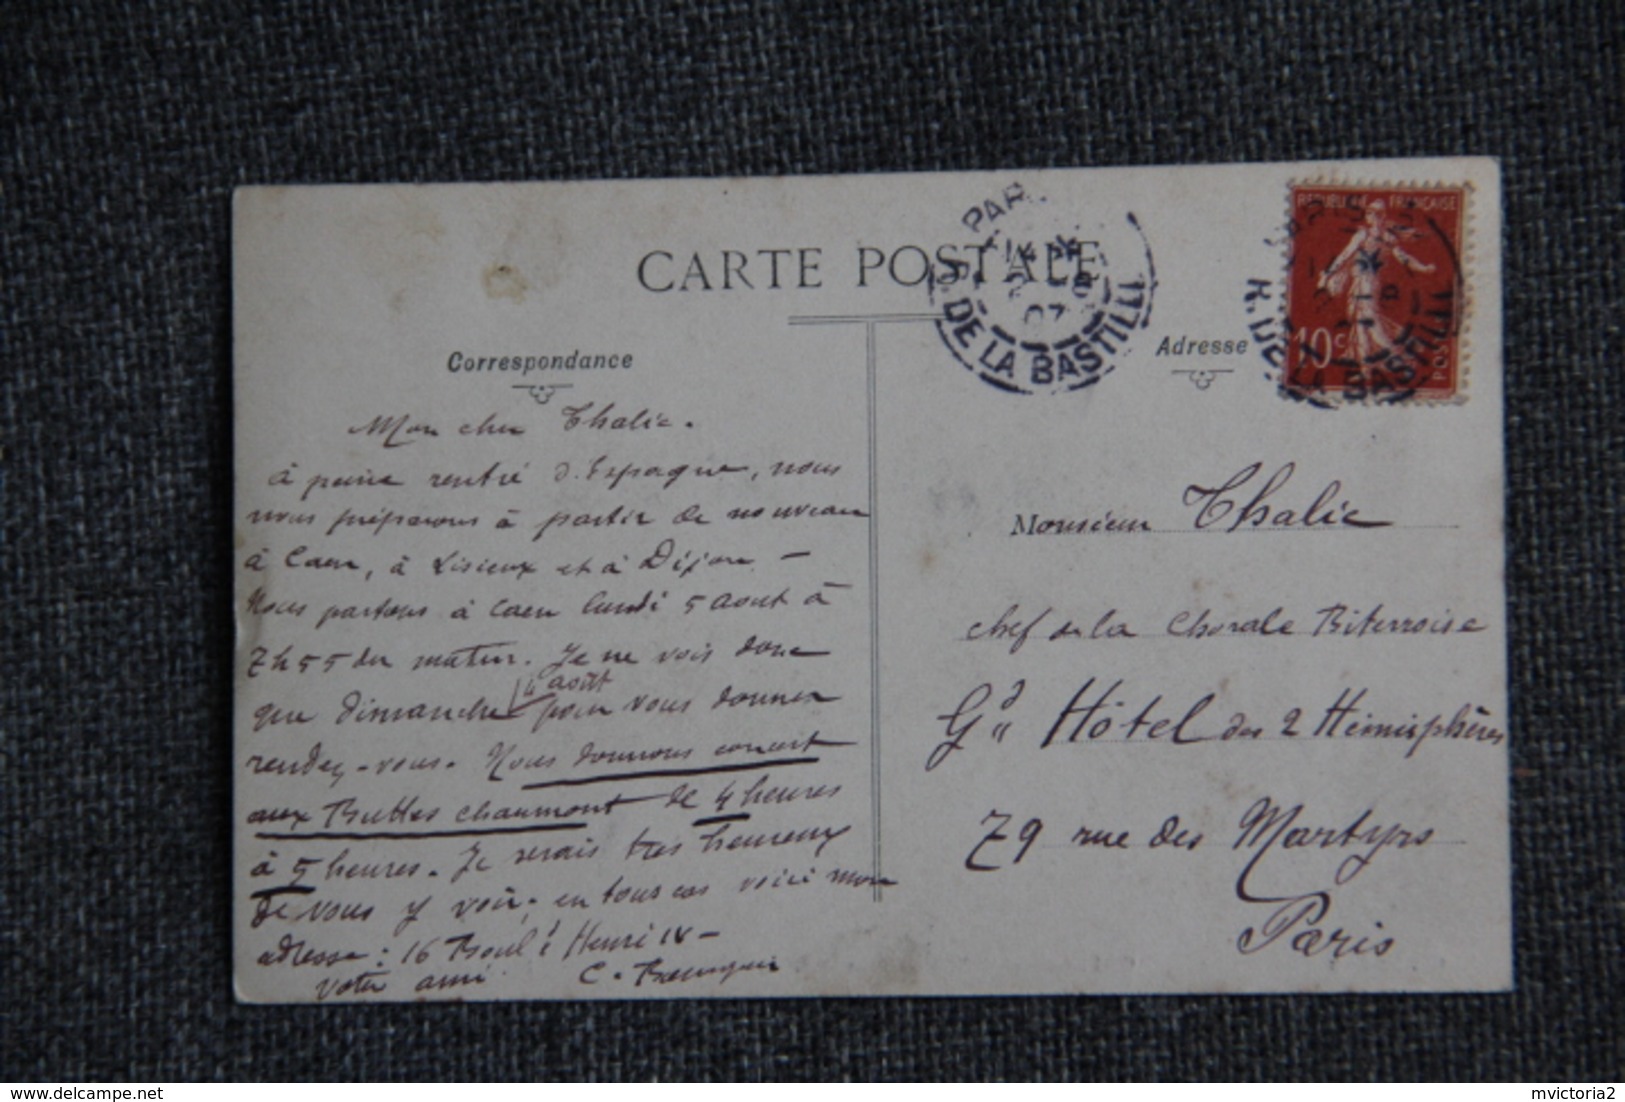 CARTE POSTALE
Correspondance
Mon cher Thalic.
à peine rentré d'Espagne, nous
nous préparons à partir de nouveau
à Caen, à Lisieux et à Dijon —
Nous partons à Caen lundi 5 août à
7h55 du matin. Je ne vois donc
que dimanche 4 août pour vous donner
rendez-vous. Nous donnons concert
aux Buttes chaumont de 4 heures
à 5 heures. Je serais très heureux
de vous y voir, en tous cas voici mon
adresse : 16 Boul.d Henri IV —
votre ami C.
PARIS
R. DE LA BASTILLE
07
Adresse
REPUBLIQUE FRANÇAISE
10c
POSTES
R. DE LA BASTILLE
Monsieur Thalic
chef de la Chorale Biterroise
Gd Hôtel des 2 Hémisphères
79 rue des Martyrs
Paris
delcampe.net
mvictoria2